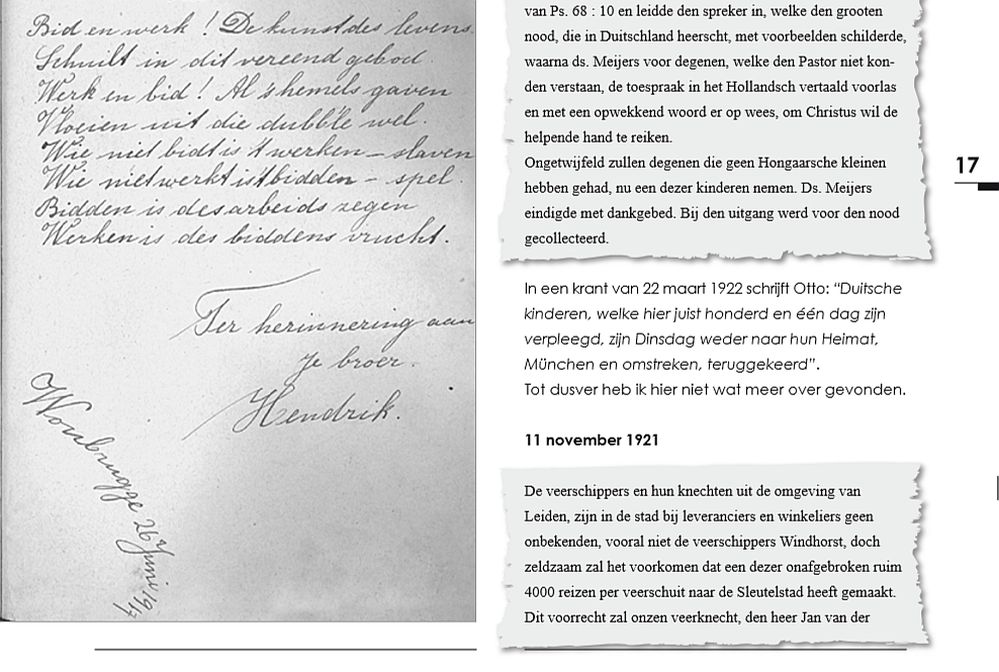 Bid en werk! De kunst des levens
Schuilt in dit vereend gebod.
Werk en bid! Al 's hemels gaven
Vloeien uit die dubb'le wel.
Wie niet bidt is 't werken – slaven
Wie niet werkt is t bidden – spel.
Bidden is des arbeids zegen
Werken is des biddens vrucht.
Ter herinnering aan
je broer.
Hendrik.
Woubrugge 26 Juni 1917
van Ps. 68 : 10 en leidde den spreker in, welke den grooten
nood, die in Duitschland heerscht, met voorbeelden schilderde,
waarna ds. Meijers voor degenen, welke den Pastor niet kon-
den verstaan, de toespraak in het Hollandsch vertaald voorlas
en met een opwekkend woord er op wees, om Christus wil de
helpende hand te reiken.
Ongetwijfeld zullen degenen die geen Hongaarsche kleinen
hebben gehad, nu een dezer kinderen nemen. Ds. Meijers
eindigde met dankgebed. Bij den uitgang werd voor den nood
gecollecteerd.
17
In een krant van 22 maart 1922 schrijft Otto: “Duitsche
kinderen, welke hier juist honderd en één dag zijn
verpleegd, zijn Dinsdag weder naar hun Heimat,
München en omstreken, teruggekeerd”.
Tot dusver heb ik hier niet wat meer over gevonden.
11 november 1921
De veerschippers en hun knechten uit de omgeving van
Leiden, zijn in de stad bij leveranciers en winkeliers geen
onbekenden, vooral niet de veerschippers Windhorst, doch
zeldzaam zal het voorkomen dat een dezer onafgebroken ruim
4000 reizen per veerschuit naar de Sleutelstad heeft gemaakt.
Dit voorrecht zal onzen veerknecht, den heer Jan van der